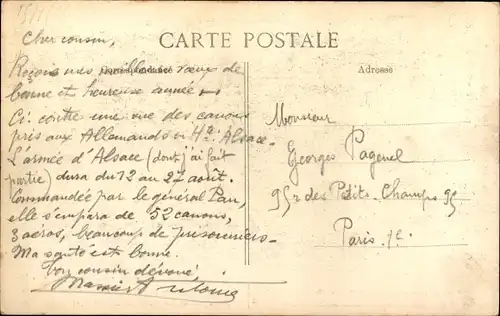 Cher cousin,
CARTE POSTALE
Correspondance
Adresse
Reçois mes meilleurs vœux de
bonne et heureuse année
Ci-contre une vue des canons
pris aux Allemands en Hte Alsace.
L'armée d'Alsace (dont j'ai fait
partie) dura du 12 au 27 août.
Commandée par le général Pau,
elle s'empara de 52 canons,
3 aéros, beaucoup de prisonniers.
Ma santé est bonne.
Ton cousin dévoué.
Monsieur
Georges Pagenel
95 r des Petits-Champs 95
Paris.